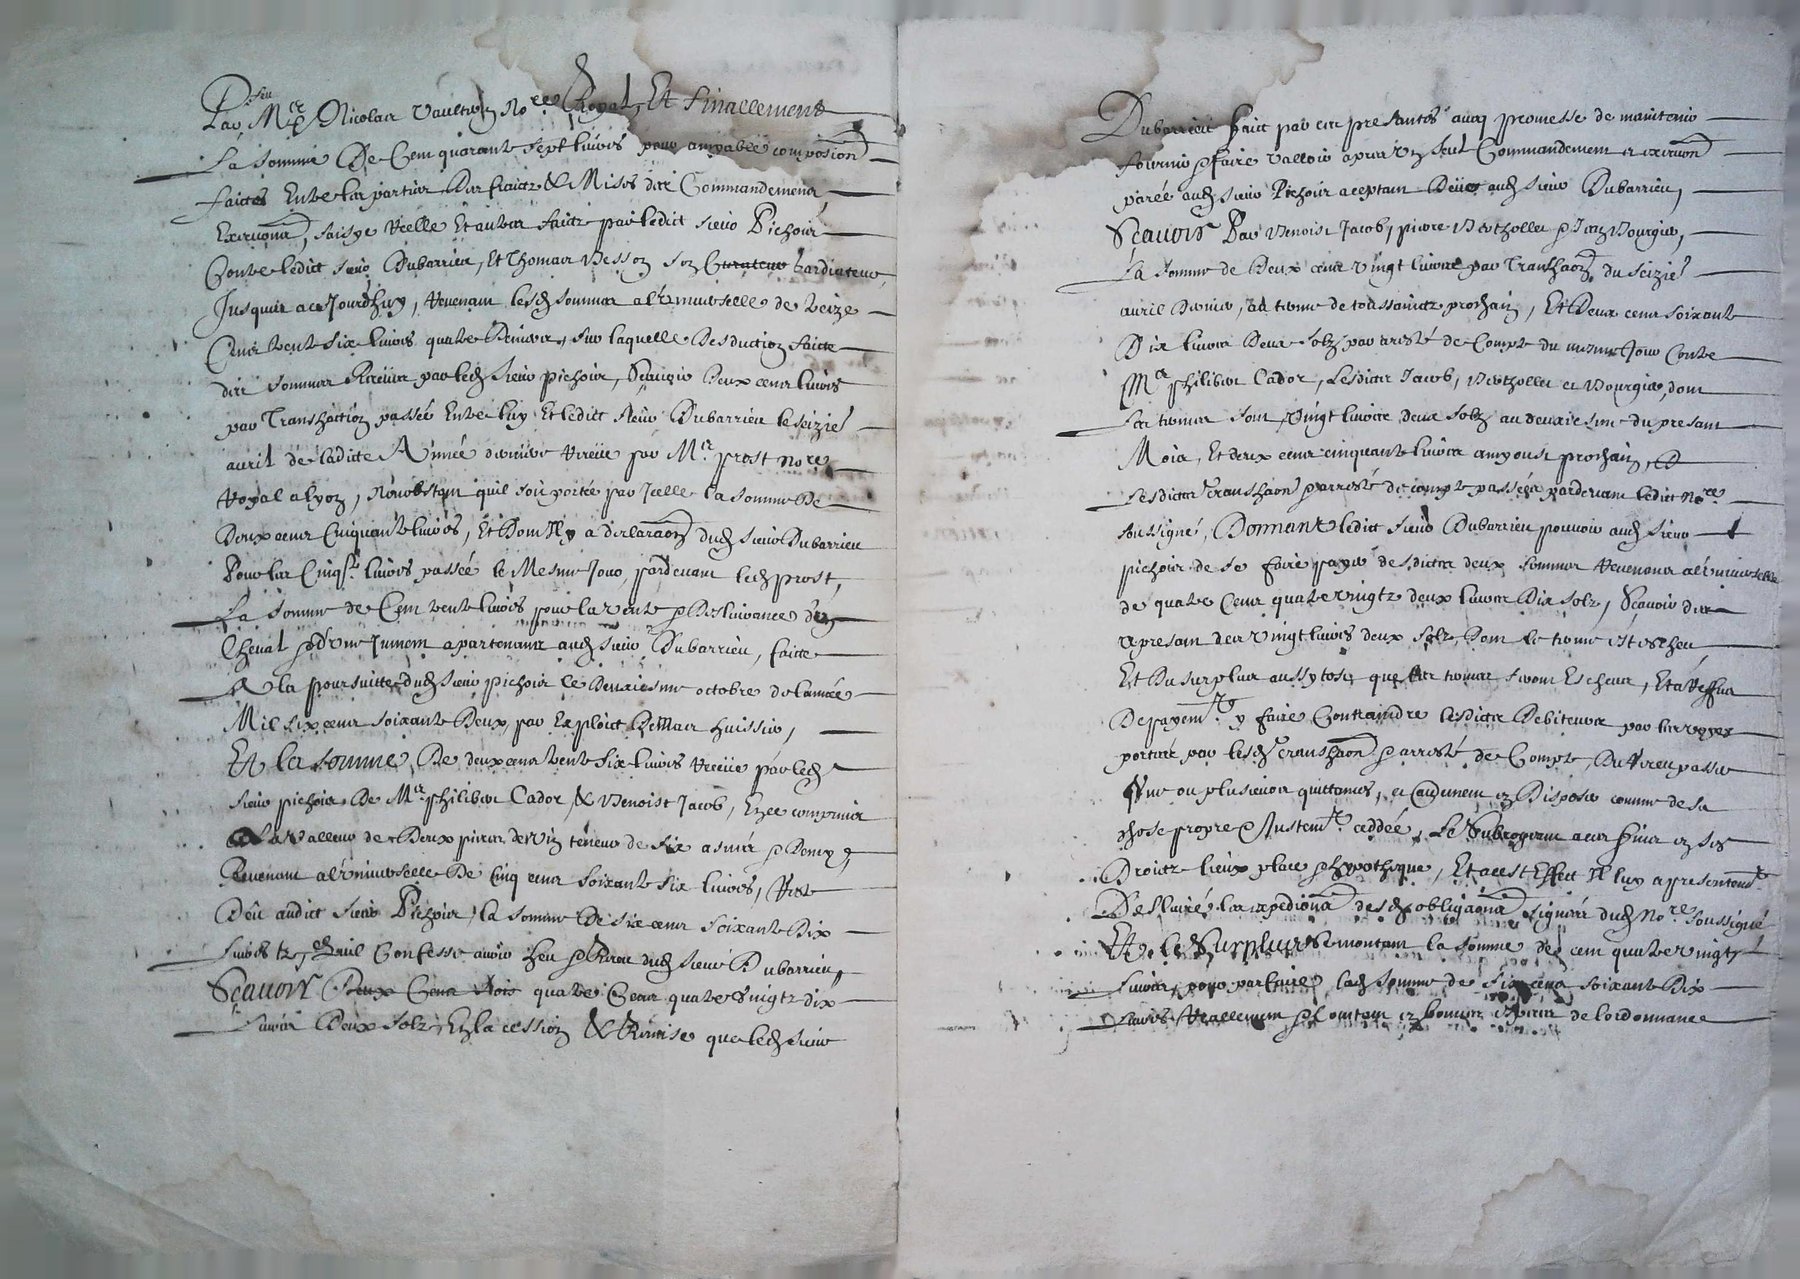 Par feu Mre Nicolas Vaultrin Nore Royal, Et finallement
La somme De Cent quarante sept livres pour amyable composion
faictes Entre les parties Des fraictz & Mises des Commandemens
Execuons, saisye Reelle Et autres faictz par ledict sieur Pichoir
Contre ledict sieur Dubarrieu, Et Thomas Besson son Curateur Gardiateur
Jusques a ce Jourdhuy, Revenant lesd sommes a l'Universelle de treize
Cens trente six livres quatre Deniers, sur laquelle Desduction faicte
des sommes Receues par led sieur pichoir, Scavoir Deux cens livres
par Transaction passée Entre luy Et ledict sieur Dubarrieu le seizie
avril de ladicte Année derniere Receue par Mre prost nore
Royal a lyon, Nonobstant quil soit porté par Icelle la somme De
Deux cens Cinquante livres, Et Dont Il y a declaraon dud sieur Dubarrieu
Pour les Cinqte livres passée le Mesme Jour, pardevant led prost,
La somme de Cent trente livres pour la vente & Deslivrance d'un
Cheval & d'Une Jument apartenant aud sieur Dubarrieu, faicte
A la poursuitte dud sieur pichoir le Deuxiesme octobre de lannée
Mil six cens soixante Deux, par Exploict De huissier,
Et la somme De deux cens trente six livres Receue par led
sieur pichoir De Mre philibert Cador, & Benoist Jacob, En ce compris
La Valleur de Deux pieces de vin teneur de six asnées & Demye,
Revenant a l'Universelle De Cinq cens soixante six livres, Reste
Deu audict sieur Pichoir, la somme De six cens soixante Dix
livres quil Confesse avoir heu & Receu dud sieur Dubarrieu,
Scavoir Deux Cens trois quatre Cens quatre Vingtz dix
livres Deux solz, En la cession & Remise que led sieur
Dubarrieu faict par ces presantes avec promesse de maintenir
fournir & faire Valloir apres Un seul Commandement et execuon
parée aud sieur Pichoir aceptant Deue aud sieur Dubarrieu,
Scavoir Par Benoist Jacob, pierre Bertholler & Jean Bourgier,
La somme de Deux cens Vingt livres par Transaon du seizie
avril Dernier, au terme de toussainctz prochain, Et Deux cens soixante
Dix livres Deux solz par aresté de Compte du mesme Jour Contre
Mre philibert Cador, Lesdictes Jacob, Bertholler et Bourgier, dont
Les termes sont Vingt livres deux solz au deuxiesme du presant
Mois, Et deux cens cinquante livres a my oust prochain,
Lesdictes transaon & aresté de compte passés pardevant ledict Nore
soussigné, Donnant ledict sieur Dubarrieu pouvoir aud sieur
pichoir de se faire payer desdictes deux sommes Revenans a l'Universelle
de quatre Cens quatre vingtz deux livres Dix solz, Scavoir
a presant des Vingt livres deux solz, Dont le terme est escheu
Et Du surplus aussy tost que les termes seront Escheus, Et a Reffus
De payemt y faire Contraindre lesdictes Debiteurs par les voyes
portées par lesd transaon & aresté de Compte, Du Receu passer
Une ou plusieurs quittances, et autrement en Disposer comme de sa
chose propre & Justemt cedée, Le Subrogeant a ces fins en ses
Droitz lieux place & hypotheque, Et a cest Effect Il luy a presentemt
Deslivré les expedions desd obligaons signées dud Nore soussigné
Et le Surplus Remontant la somme de cent quatre vingtz
livres, pour parfaire lad somme de six cens soixante Dix
livres Reallement & Contant en bonnes Especes de lordonnance